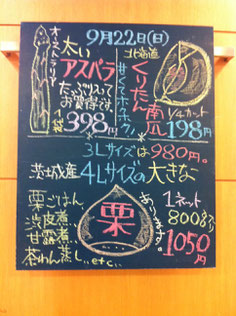 9月22日(日)
オーストラリア
太い
アスパラ
たっぷり入って
お買得です。
1袋 398円
北海道
くりたん南瓜
甘くてホクホク!
1/4カット
198円
3Lサイズは980円。
茨城産
4Lサイズの大きな
栗
あります。
栗ごはん、
渋皮煮、
甘露煮、
茶わん蒸し、etc.
1ネット
800g入り
1050円